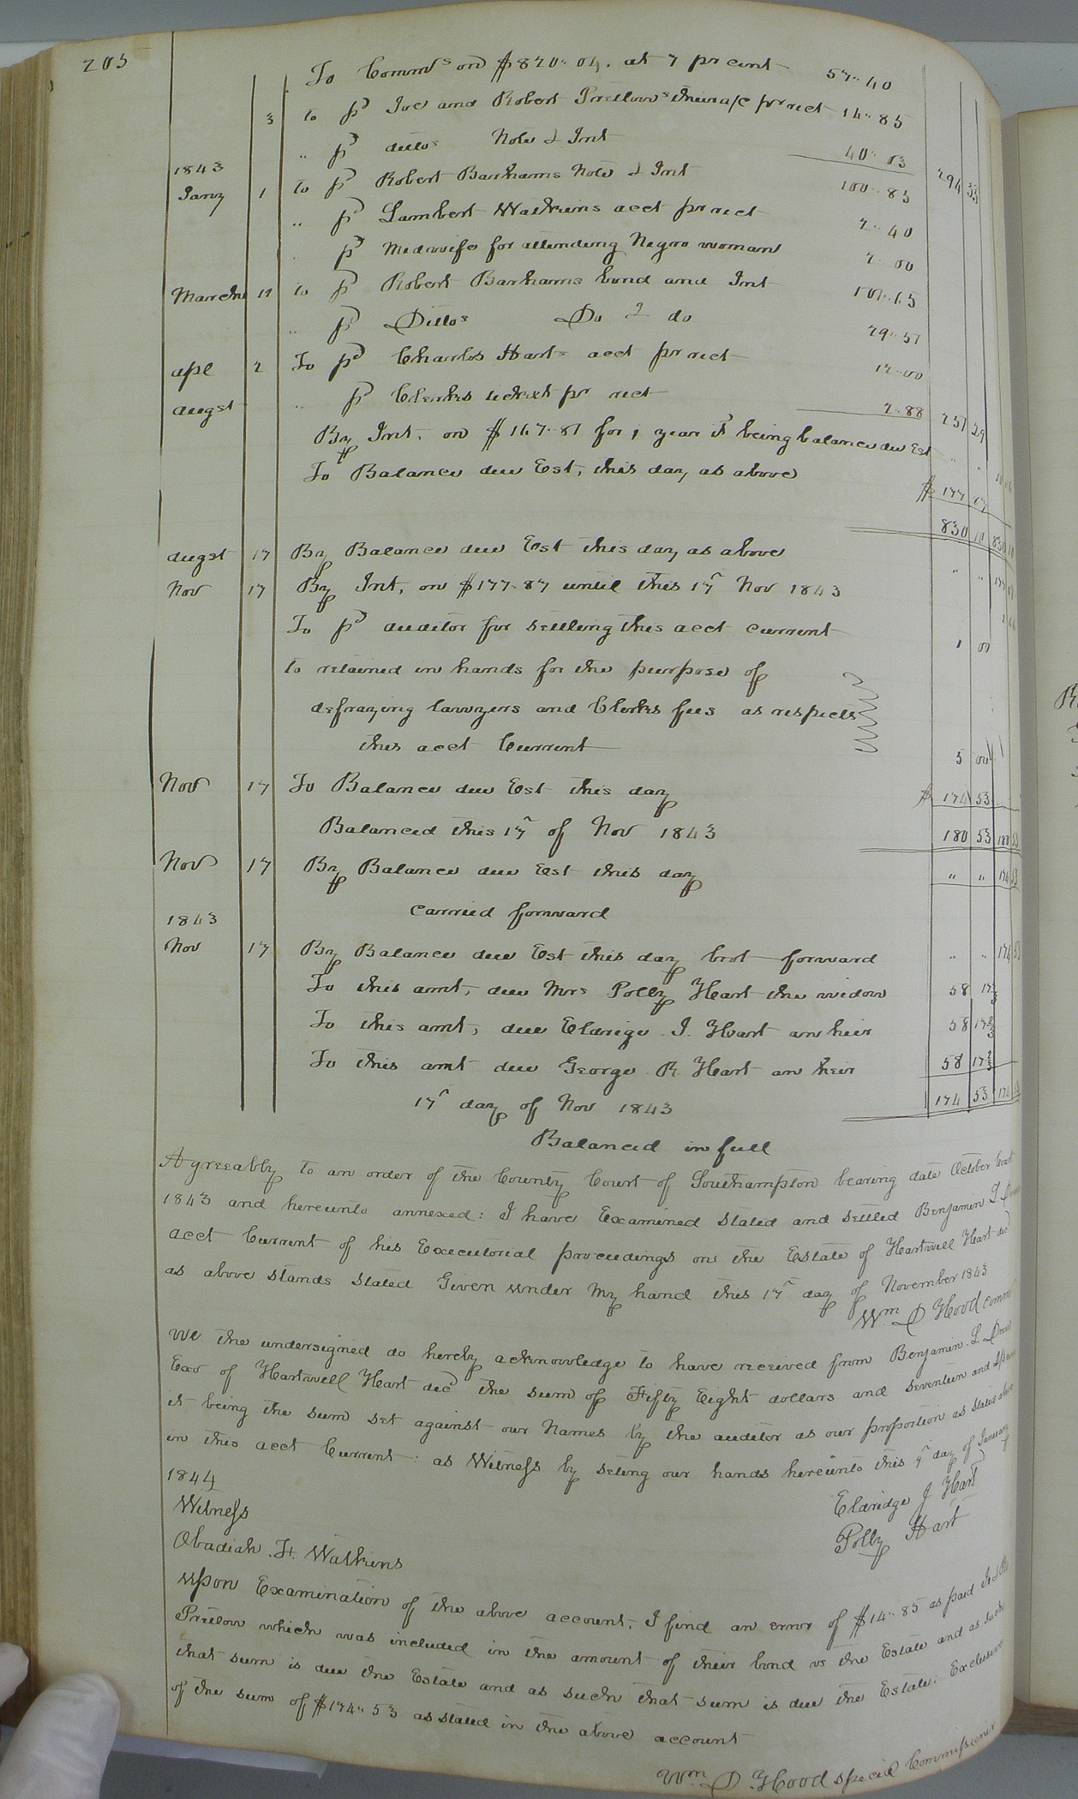 203
To Comms on $820.04. at 7 pr cent 57.40
3 to pd Joe and Robert Pretlows their a/c pr rect 14.85
" pd ditto Note & Int 40.03
1843 294 33
Jany 1 to pd Robert Barhams Note & Int 100.83
" pd Lambert Watkins acct pr rect 2.40
pd Midwife for attending Negro woman 2.00
March 11 to pd Robert Barhams bond and Int
" pd Dittos Do & do 29.57
apl 2 To pd Charles Hart acct pr rect 12.00
augst " pd Clerks ticket pr rect 2.88 257 29
By Int. on $167.81 for 1 year it being balance due Est " "
To Balance due Est, this day as above $ 177
830 10 830 10
augst 17 By Balance due Est this day as above " "
Nov 17 By Int, on $177.87 until this 17th Nov 1843
To pd auditor for settling this acct current 1 00
to retained in hands for the purpose of
defraying lawyers and Clerks fees as respects
this acct Current 5 00
Nov 17 To Balance due Est this day $ 174 53
Balanced this 17th of Nov 1843 180 53 180 53
Nov 17 By Balance due Est this day " " 174 53
carried forward
1843
Nov 17 By Balance due Est this day brot forward " " 174 53
To this amt, due Mrs Polly Hart the widow 58 17 2/3
To this amt, due Eldrige J. Hart an heir 58 17 2/3
To this amt due George R. Hart an heir 58 17 2/3
17th day of Nov 1843 174 53 174
Balanced in full
Agreeably to an order of the County Court of Southampton bearing date October Court
1843 and hereunto annexed: I have Examined stated and settled Benjamin L
acct Current of his Executorial proceedings on the Estate of Hartwell Hart decd
as above stands stated Given under my hand this 17th day of November 1843
Wm D Hood comms
We the undersigned do hereby acknowledge to have received from Benjamin. L
Exor of Hartwell Hart decd the sum of Fifty Eight dollars and seventeen and
it being the sum set against our Names by the auditor as our proportion as stated above
in this acct Current: as Witness by seting our hands hereunto this 9th day of January
1844
Eldridge J Hart
Witness
Polly Hart
Obadiah. H. Watkins
upon Examination of the above account, I find an error of $14.85 as paid
Pretlow which was included in the amount of their bond vs the Estate and as such
that sum is due the Estate and as such that sum is due the Estate. Exclusive
of the sum of $174.53 as stated in the above account
Wm D. Hood special Commissioner